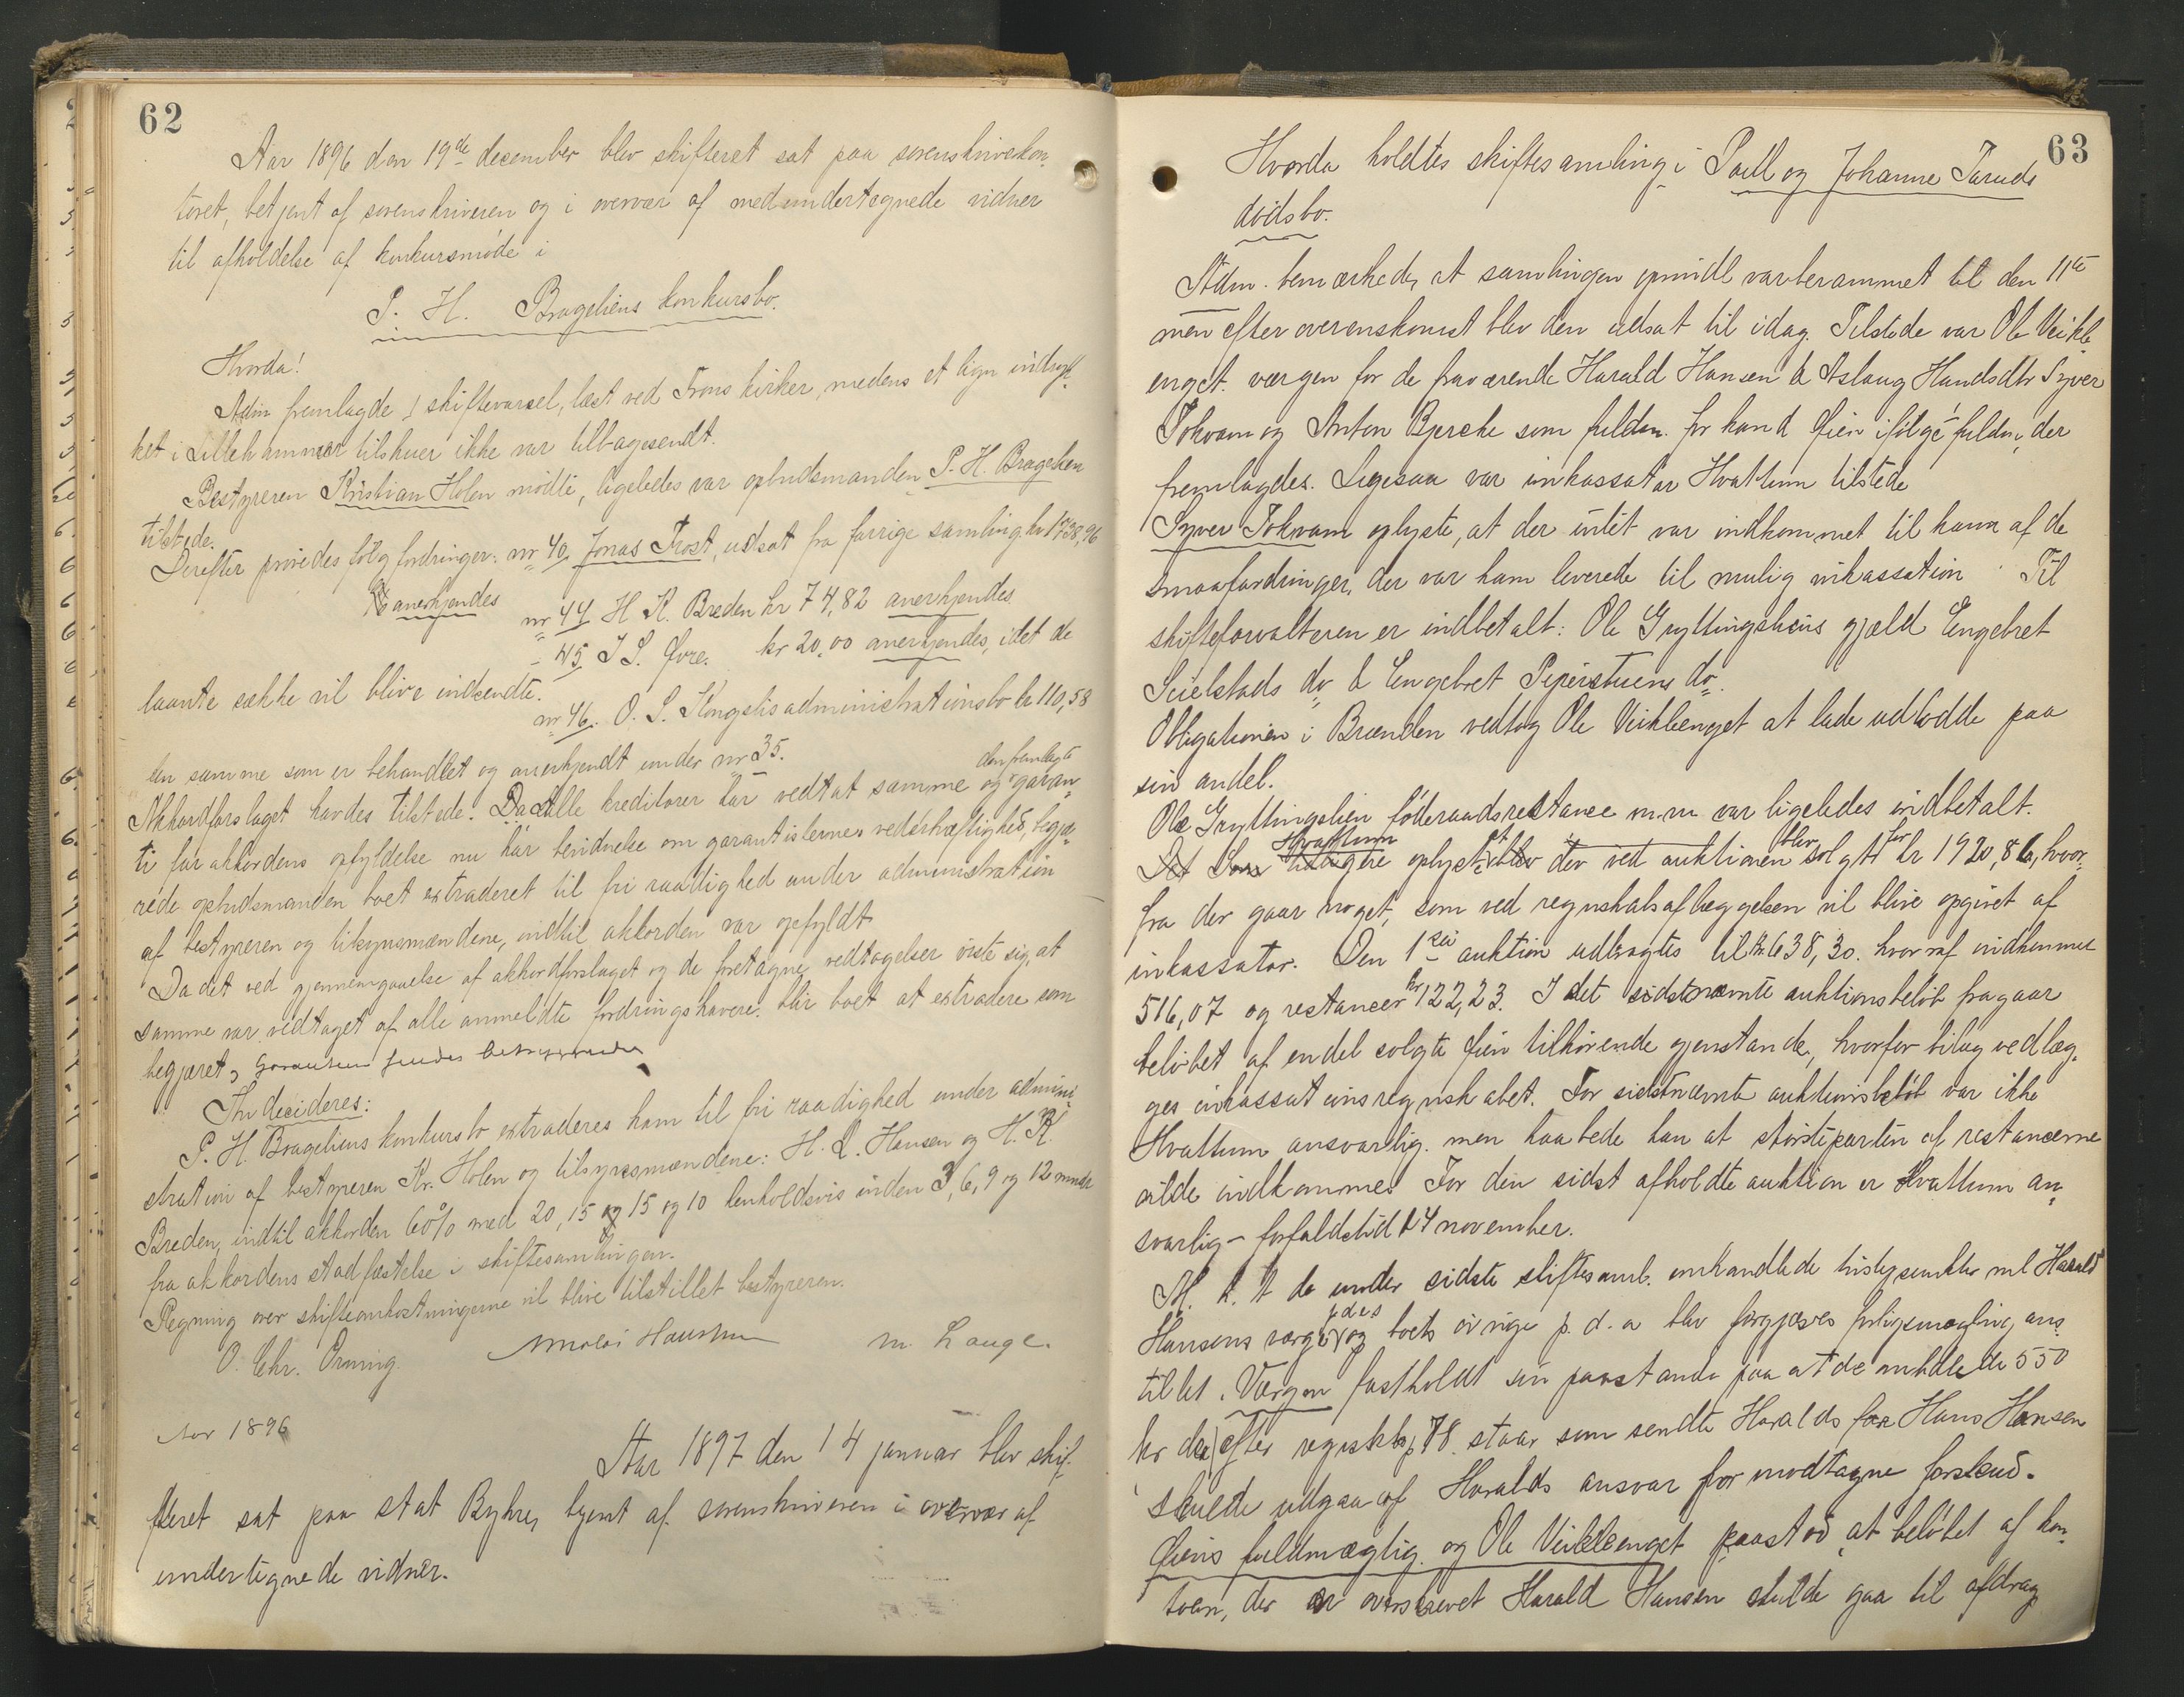 62
Aar 1896 den 19de december blev skifteret sat paa sorenskriverkon-
toret, betjent af sorenskriveren og i overvær af medundertegnede vidner
til afholdelse af konkursmøde i
P. H. Brageliens konkursbo.
Hvorda!
Adm fremlagde 1 skiftevarsel, læst ved Frons kirker, medens et lign indryk-
ket i Lillehammer tilskuer ikke var tilbagesendt.
Bestyreren Kristian Holen mødte, ligeledes var opbudsmanden P. H. Bragelien
tilstede.
Derefter prøvedes følg fordringer: nr 40, Jonas Trost, udsat fra forrige samling kr 1728,96
anerkjendes
nr 44 H K. Breden kr 74,82 anerkjendes
" 45, J S. Øvre. kr 20,00 anerkjendes, idet de
laante sække vil blive indsendte.
nr 46. O. S. Kongslis administrationsbo kr 110,58
den samme som er behandlet og anerkjendt under nr 35.
Akkordforslaget havdes tilstede. Da alle kreditorer har vedtat samme og den fremlagte garan-
ti for akkordens opfyldelse nu har bevidnelse om garantisternes vederhæftighed, begjæ-
rede opbudsmanden boet extraderet til fri raadighed under administration
af bestyreren og tilsynsmændene, indtil akkorden var opfyldt
Da det ved gjennemgaaelse af akkordforslaget og de foretagne vedtagelser viste sig, at
samme var vedtaget af alle anmeldte fordringshavere, blir boet at extradere som
begjæret, Garantien findes betryggende
Thi decideres:
P. H. Brageliens konkursbo extraderes ham til fri raadighed under admini-
stration af bestyreren Kr. Holen og tilsynsmændene: H. L. Hansen og H. K.
Breden, indtil akkorden 60% med 20, 15 og 15 og 10 henholdsvis inden 3, 6, 9 og 12 mndr
fra akkordens stadfæstelse i skiftesamlingen.
Regning over skifteomkostningerne vil blive tilstillet bestyreren.
O. Chr. Orning. Nicolai M. Lange.
Aar 1896
Aar 1897 den 14 januar blev skif-
teret sat paa stat Byhre, bejent af sorenskriveren i overvær af
undertegnede vidner.
63
Hvorda holdtes skiftesamling i Poul og Johanne Taruds
dødsbo.
Adm. bemærkede, at samlingen oprindl var berammet til den 11te
men efter overenskomst blev den udsat til idag. Tilstede var Ole Veikle-
enget. værgen for de fraværende Harald Hansen & Aslaug Hansdtr Syver
Tokvam og Anton Bjerke som fuldm. for kand Øien ifølge fuldm, der
fremlagdes. Ligesaa var inkassator Hvattum tilstede
Syver Tokvam oplyste, at der intet var indkommet til ham af de
smaafordringer, der var ham leverede til mulig inkassation. Til
skifteforvalteren er indbetalt: Ole Gryttingsliens gjæld Engebret
Seielstads do & Engebret Peperstuens do.
Obligationen i Brænden vedtog Ole Veikleenget at lade udlodde paa
sin andel.
Ole Gryttingslien føderaadsrestance m.m var ligeledes indbetalt.
Hvattum oplyste at der ved auktionen blev solgt for kr 1920,86, hvor-
fra der gaar noget, som ved regnskabsaflæggelsen vil blive opgivet af
inkassator. Den 1ste auktion udbragtes til kr 638,30. hvoraf indkommet
516,07 og restancer kr 122,23. I det sidstnævnte auktionsbeløb fragaar
beløbet af endel solgte Øien tilhørende gjenstande, hvorfor bilag vedlæg-
ges inkassationsregnskabet. For sidstnævnte auktionsbeløb var ikke
Hvattum ansvarlig, men haabede han at størsteparten af restancerne
vilde indkommes For den sidst afholdte auktion er Hvattum an-
svarlig - forfaldstid 24 november.
M. h. t de under sidste skiftesaml. omhandlede tvistepunkter ml Harald
Hansens værge og boets øvrige p. d. a blev forgjæves forligsmægling ans-
tillet. Værgen fastholdt sin paastand paa at de omhdlede 550
kr der efter regnskb p 78. staar som sendte Haralds far Hans Hansen
skulde udgaa af Haralds ansvar for modtagne forskud.
Øiens fuldmægtig og Ole Veikleenget paastod at beløbet af kon-
toen, der er overskrevet Harald Hansen skulde gaa til afdrag